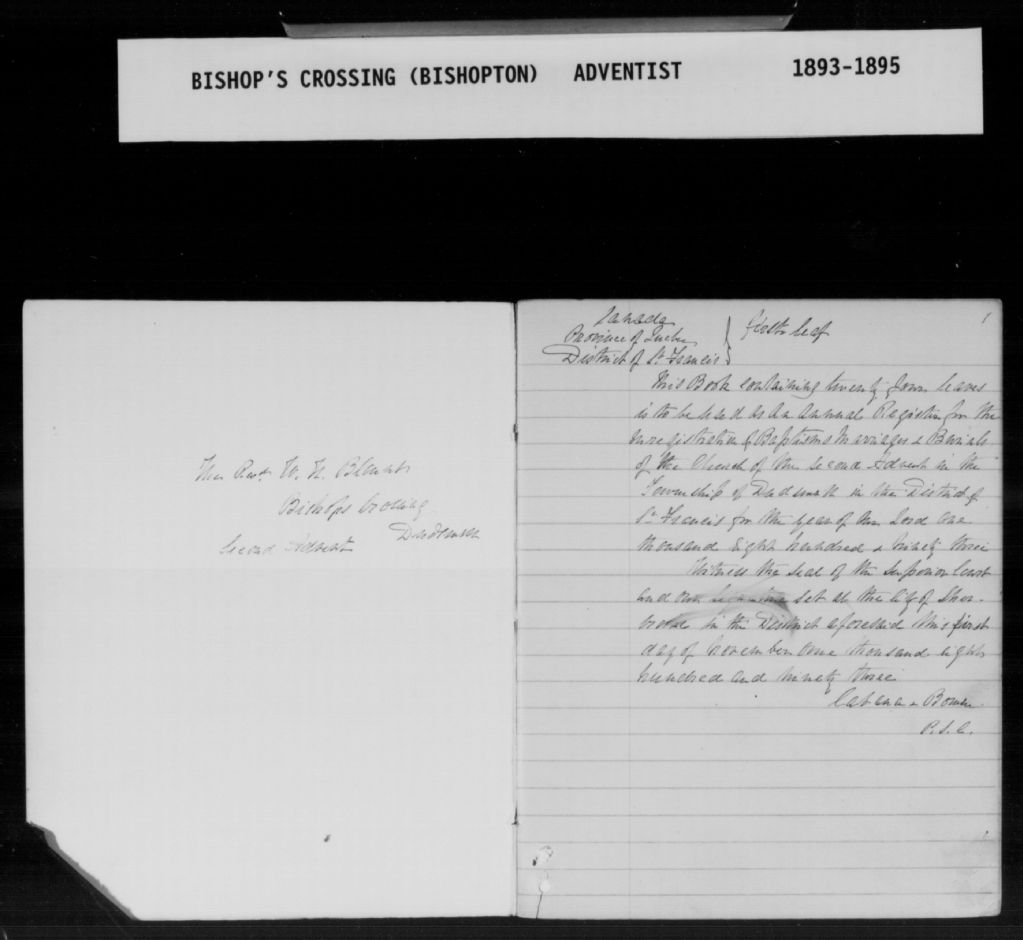 BISHOP'S CROSSING (BISHOPTON) ADVENTIST 1893-1895
The Revd W. H. Blount
Bishops Crossing
Dudswell
Second Advent
1
Canada
Province of Quebec
District of St Francis
first leaf
This Book containing twenty four leaves
is to be used as an annual Register for the
registration of Baptisms Marriages & Burials
of the Church of the Second Advent in the
Township of Dudswell in the District of
St Francis for the year of Our Lord one
thousand eight hundred & ninety three
Witness the seal of the Superior Court
and our set at the City of Sher-
brooke in the District aforesaid this first
day of November One thousand eight
hundred and ninety three
Cabana & Bowen
P.S.C.